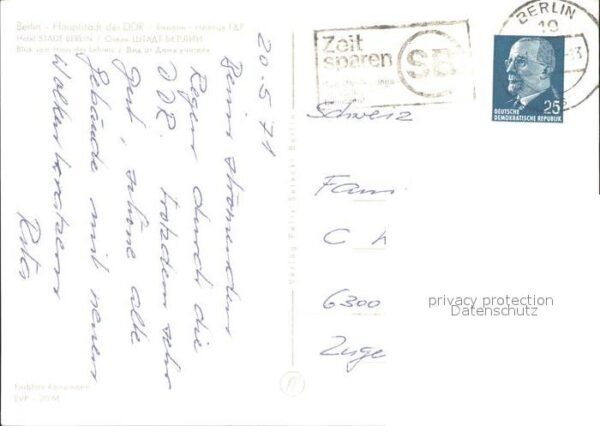 Berlin - Hauptstadt der DDR
Hotel STADT BERLIN / Отель ШТАДТ БЕРЛИН
Blick vom Haus des Lehrers / Вид от Дома учителя
20.5.71
Beim strömenden
Regen durch die
DDR. trotzdem sehr
gut, schöne alte
Gebäude mit neuen
Wolkenkratzern
Verlag Felix Setecki Berlin
EVP
Zeit
sparen
SB
BERLIN
25
DEUTSCHE
DEMOKRATISCHE REPUBLIK
Schweiz
Fam
C
6300
Zug
privacy protection
Datenschutz